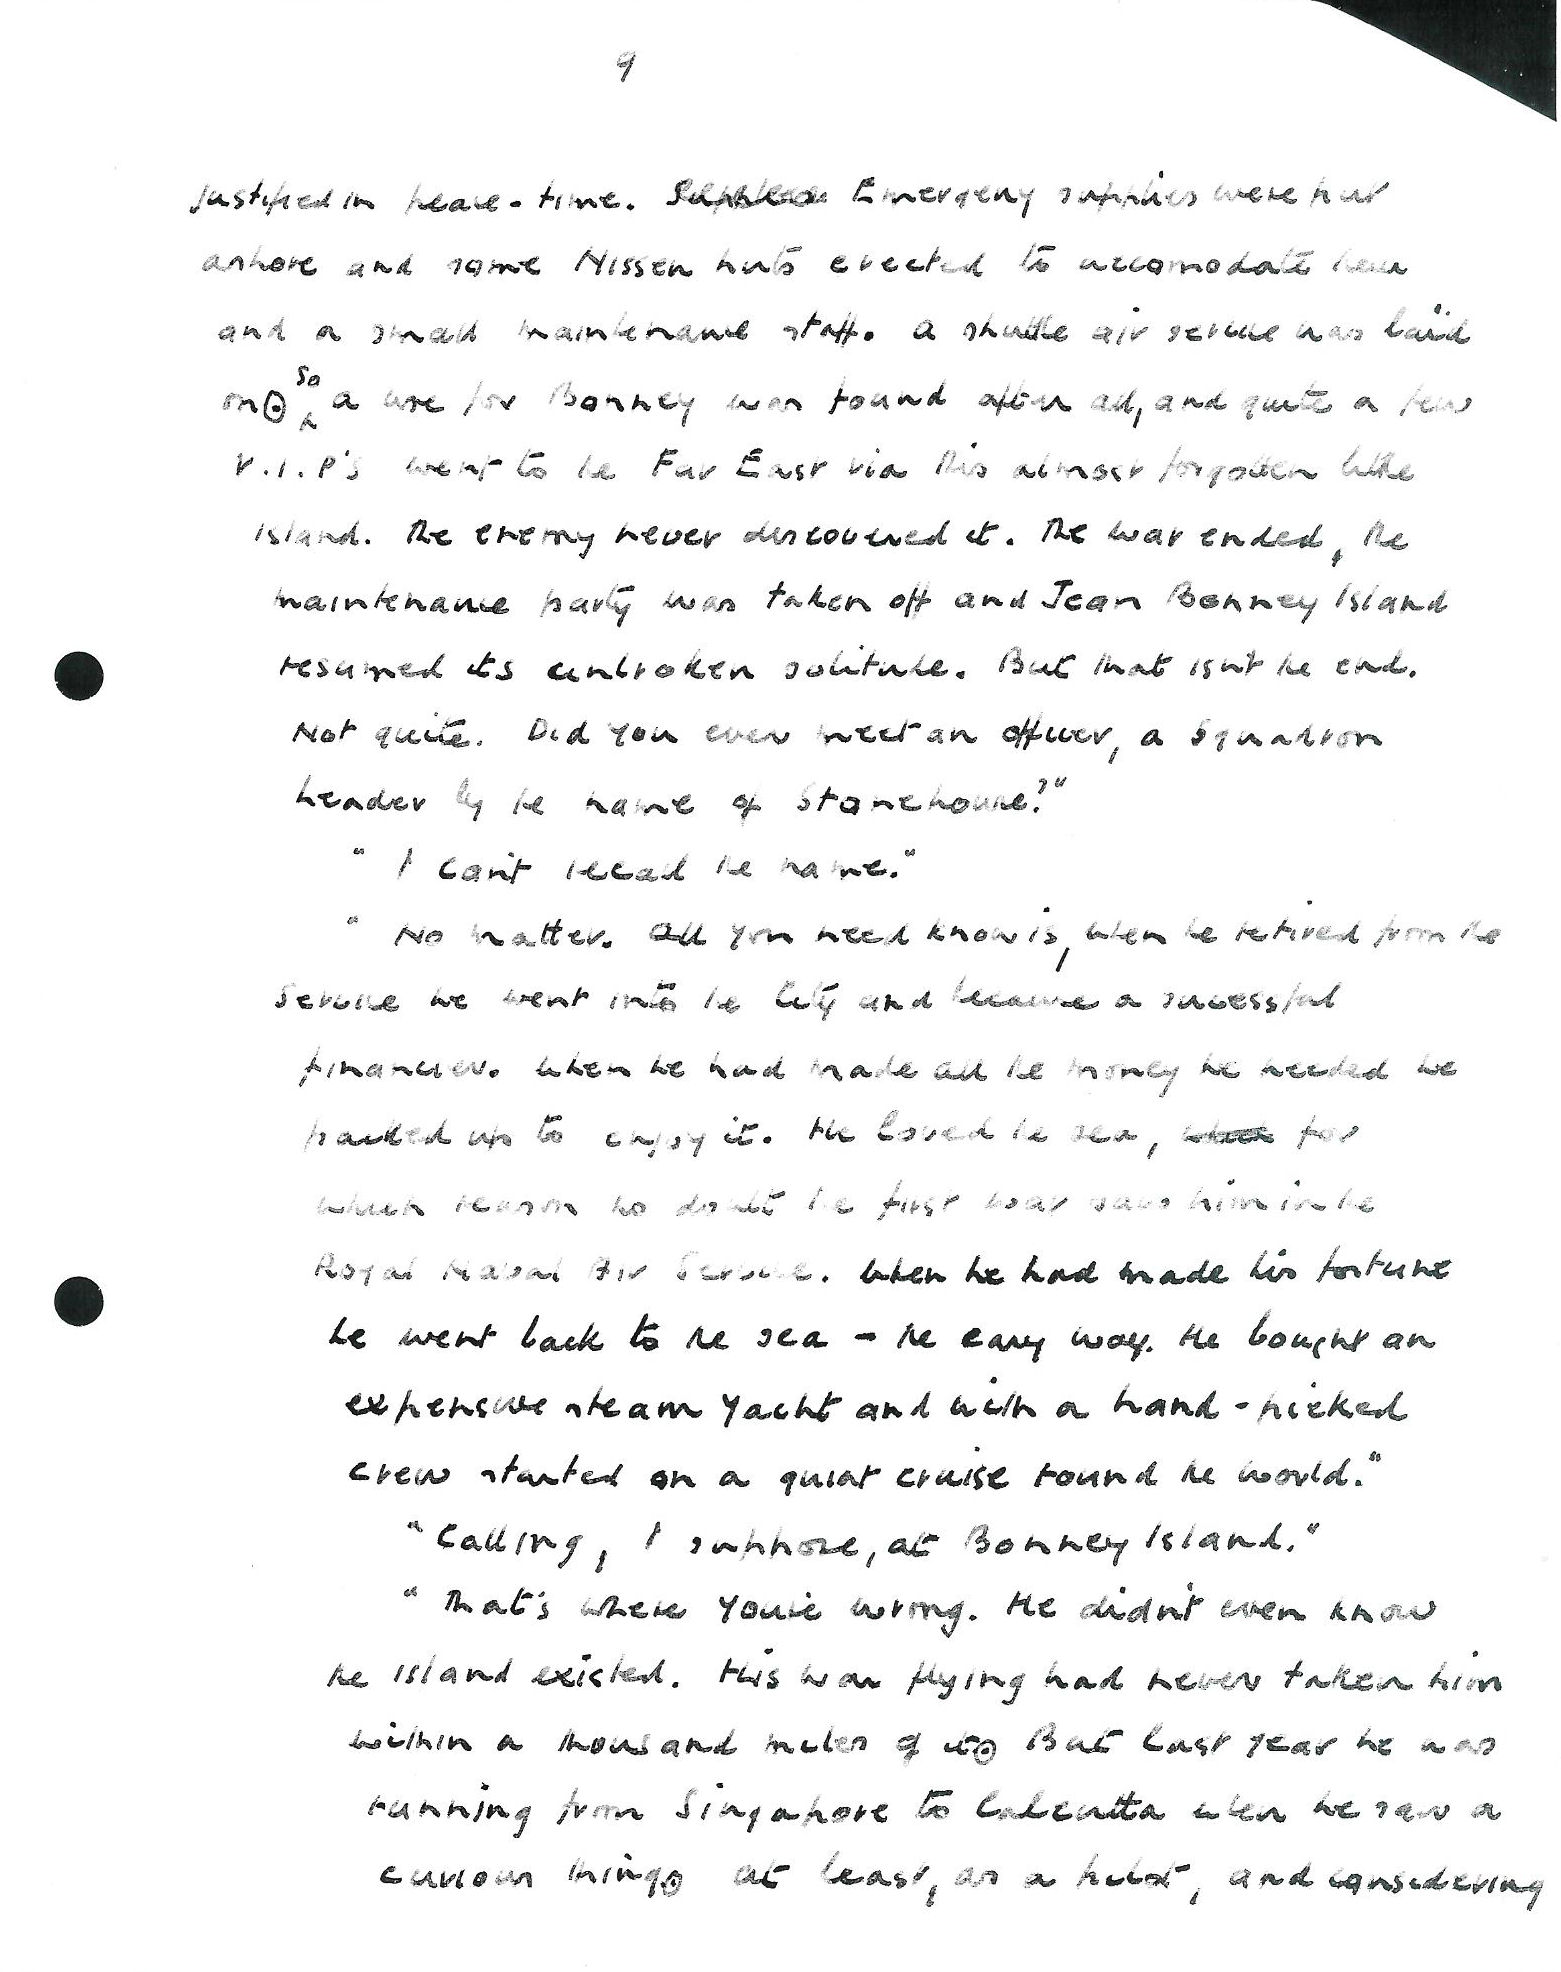 9
justified in peace-time. Supplies Emergeny supplies were put
ashore and some Nissen huts erected to accomodate them
and a small maintenance staff. A shuttle air service was laid
on. so a use for Bonney was found after all, and quite a few
V.I.P's went to the Far East via this almost forgotten little
island. The enemy never discovered it. The war ended, the
maintenance party was taken off and Jean Bonney Island
resumed its unbroken solitude. But that isn't the end.
Not quite. Did you ever meet an officer, a Squadron
Leader by the name of Stonehouse?"
"I can't recall the name."
"No matter. All you need know is, when he retired from the
Service he went into the City and became a sucessful
financier. When he had made all the money he needed he
packed up to enjoy it. He loved the sea, when for
which reason no doubt the first war saw him in the
Royal Naval Air Service. When he had made his fortune
he went back to the sea - the easy way. He bought an
expensive steam yacht and with a hand-picked
crew started on a quiat cruise round the world."
"Calling, I suppose, at Bonney Island."
"That's where you're wrong. He didn't even know
the island existed. His war flying had never taken him
within a thousand miles of it. But last year he was
running from Singapore to Calcutta when he saw a
curious thing. At least, as a pilot, and considering